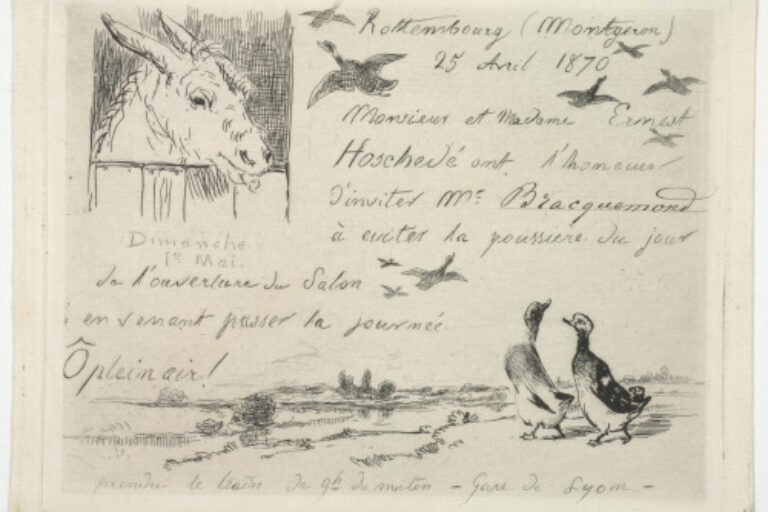 Rottembourg (Montgeron)
25 Avril 1870
Monsieur et Madame Ernest
Hoschedé ont l'honneur
d'inviter Mr Bracquemond
à eviter la poussière du jour
Dimanche
1er Mai.
de l'ouverture du Salon
en venant passer la journée
Ô plein air!
prendre le train de 9h du matin - Gare de Lyon -